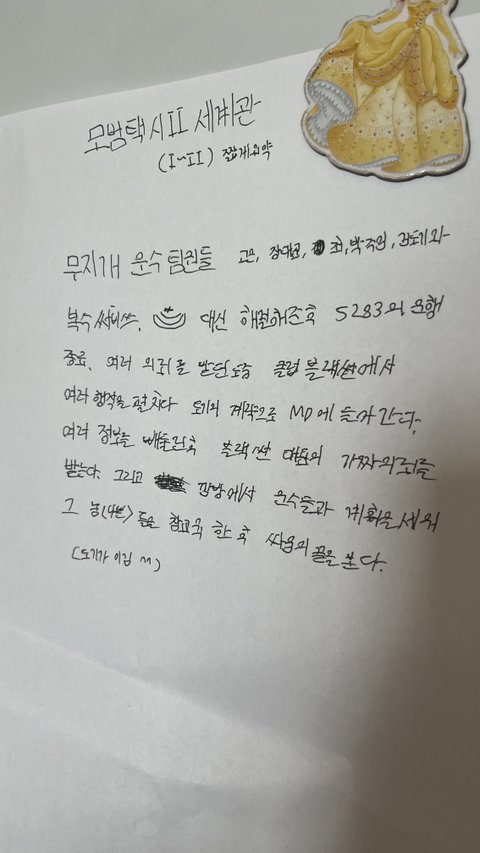 모범택시II 세계관
(I~II) 짧게요약
무지개 운수 팀원들 고은, 장대표, 최, 박주임, 김도기와
복수 서비스, 대신 해결해준후 5283의 운행
종료. 여러 의뢰를 받던도중 클럽 블랙썬에서
여러 행적을 펼치다 도기의 계략으로 MD에 들어간다.
여러 정보를 빼돌린후 블랙썬 대표의 가짜의뢰를
받는다. 그리고 깜방에서 운수들과 계획을 세워
그 놈(나쁜)들을 참교육 한 후 싸움의 끝을 본다.
(도기가 이김 ㅆ)